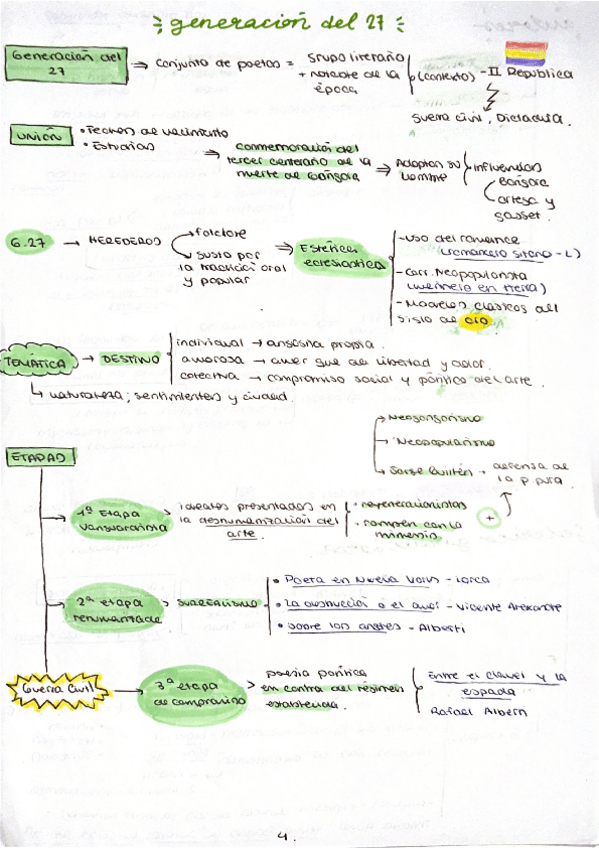 generación del 27
Generación del 27 → conjunto de poetas = grupo literario + notable de la época (contexto) - II República
Guerra civil, Dictadura.
UNIÓN
• Fechas de nacimiento
• Estudios
⇒ conmemoración del tercer centenario de la muerte de Góngora ⇒ Adoptan su nombre
influencias
Góngora
ortega y gasset.
G.27 → HEREDEROS
folclore
gusto por la tradición oral y popular
⇒ Estética ecléctica
- Uso del romance
(romancero gitano - L)
- Corr. Neopopularista
(marinero en tierra)
- Modelos clásicos del siglo de oro
TEMÁTICA → DESTINO
individual → angustia propia.
amorosa → amor que da libertad y dolor.
colectiva → compromiso social y político del arte.
naturaleza, sentimientos y ciudad.
ETAPAS
→ Neogongorismo
→ Neopopularismo
→ Jorge Guillén → defensa de la p. pura
1ª Etapa vanguardista
ideales presentados en la deshumanización del arte.
• regeneracionistas
• rompen con la mímesis
+
2ª etapa rehumanizada → SURREALISMO
• Poeta en Nueva York - Lorca
• La destrucción o el amor - Vicente Aleixandre
• Sobre los ángeles - Alberti
Guerra Civil → 3ª etapa de compromiso → poesía política en contra del régimen establecido.
Entre el clavel y la espada
Rafael Alberti
4.